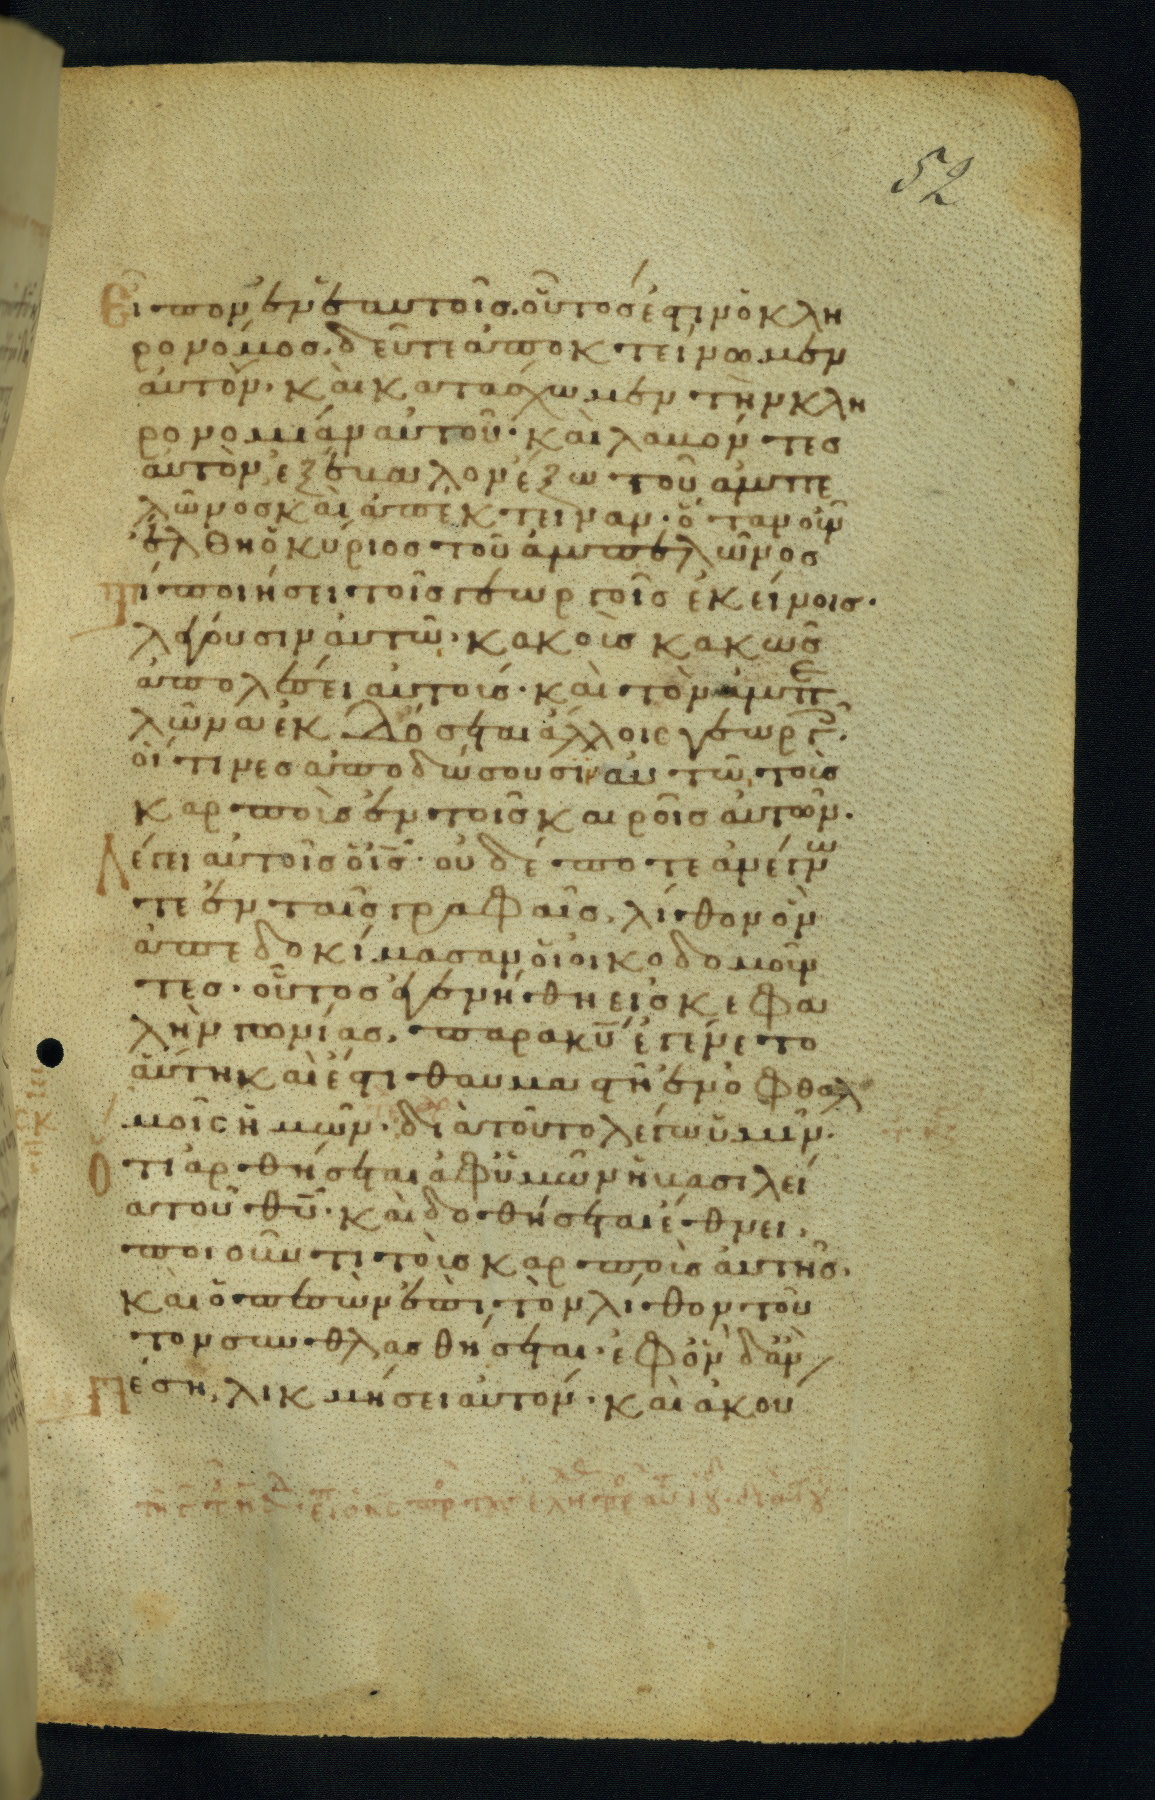 52
Εἶπον ἐν ἑαυτοῖσ. οὗτοσ ἐστιν ὁ κλη
ρονόμοσ. δεῦτε ἀποκτείνωμεν
ἀυτὸν. κὰι κατασχωμεν τὴν κλη
ρονομίαν ἀυτοῦ. κὰι λαβόντεσ
ἀυτὸν ἐξέβαλον ἔξω τοῦ ἀμπε
λῶνοσ κὰι ἀπέκτειναν. ὅταν οὖν
ἔλθη ὁ κύριοσ τοῦ ἀμπελῶνοσ
τί ποιήσει τοῖσ γεωργοῖσ ἐκείνοισ.
λέγουσιν ἀυτῶ. κακοὺσ κακῶσ
ἀπολέσει ἀυτούσ. κὰι τὸν ἀμπε
λῶνα ἐκδόσεται ἄλλοισ γεωργοῖσ.
ὅιτινεσ ἀποδώσουσιν ἀυτῶ τοὺσ
καρποὺσ ἐν τοῖσ καιροῖσ ἀυτῶν.
Λέγει ἀυτοῖσ ὁ ισ. οὐδέποτε ἀνέγνω
τε ἐν ταῖσ γραφαῖσ. λίθον ὃν
ἀπεδοκίμασαν ὁι οἰκοδομοῦν
τεσ. οὗτοσ ἐγενήθη εἰσ κεφα
λὴν γωνίασ. παρα κυ ἐγένετο
ἅυτη κὰι ἔστι θαυμαστὴ ἐν ὀφθαλ
μοῖσ ἡμῶν. διὰ τοῦτο λέγω ὑμῖν.
ὅτι ἀρθήσεται ἀφ ὑμῶν ἡ βασιλεί
α τοῦ θυ. κὰι δοθήσεται ἔθνει.
ποιοῦντι τοὺσ καρποὺσ ἀυτῆσ.
κὰι ὁ πεσὼν ἐπὶ τὸν λίθον τοῦ
τον συνθλασθήσεται. ἐφ ὃν δ ἂν
πέση, λικμήσει ἀυτόν. κὰι ἀκού